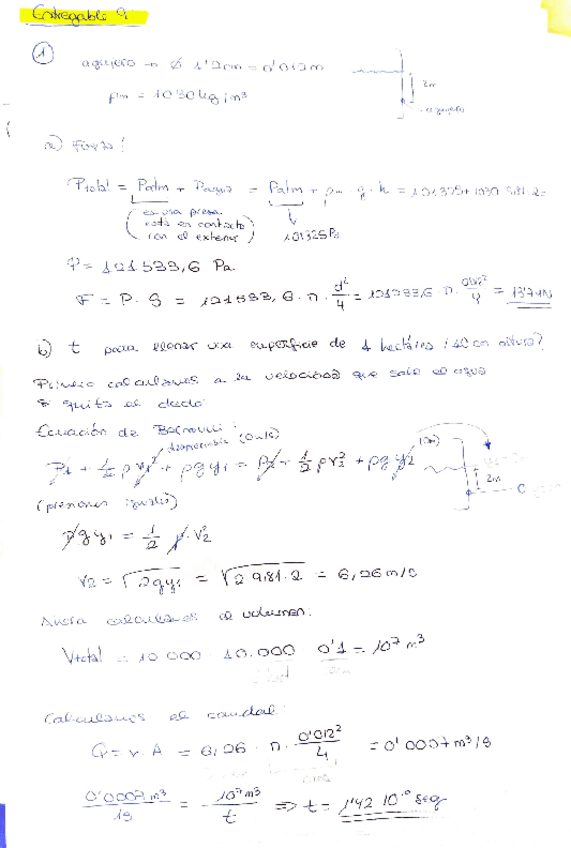 Entregable 9
①
agujero → Ø 1'2cm = 0'012m
2m
agujero
ρm = 1030 kg/m³
a) Fuerza!
Ptotal = Patm + Pagua = Patm + ρm · g · h = 101325 + 1030 · 9.81 · 2 =
(es una presa está en contacto con el exterior)
101325 Pa
P = 121533,6 Pa.
F = P · S = 121533,6 · π · d²/4 = 121533,6 · π · 0'012²/4 = 13'74N
b) t para llenar una superficie de 1 hectárea / 10cm altura?
Primero calculamos a la velocidad que sale el agua
si quita el dedo:
Ecuación de Bernoulli:
despreciable (0m/s)
(0m)
P1 + 1/2 ρ v1² + ρ g y1 = P2 + 1/2 ρ v2² + ρ g y2
2m
(presiones iguales)
ρ g y1 = 1/2 ρ · v2²
v2 = √2gy1 = √2 · 9,81 · 2 = 6,26 m/s
Ahora calculamos el volumen:
Vtotal = 10 000 · 10.000 · 0'1 = 10⁷ m³
Calculamos el caudal:
Q = v · A = 6,26 · π · 0'012²/4 = 0'0007 m³/s
0'0007 m³/1s = 10⁷ m³/t ⇒ t = 1'42 · 10¹⁰ seg